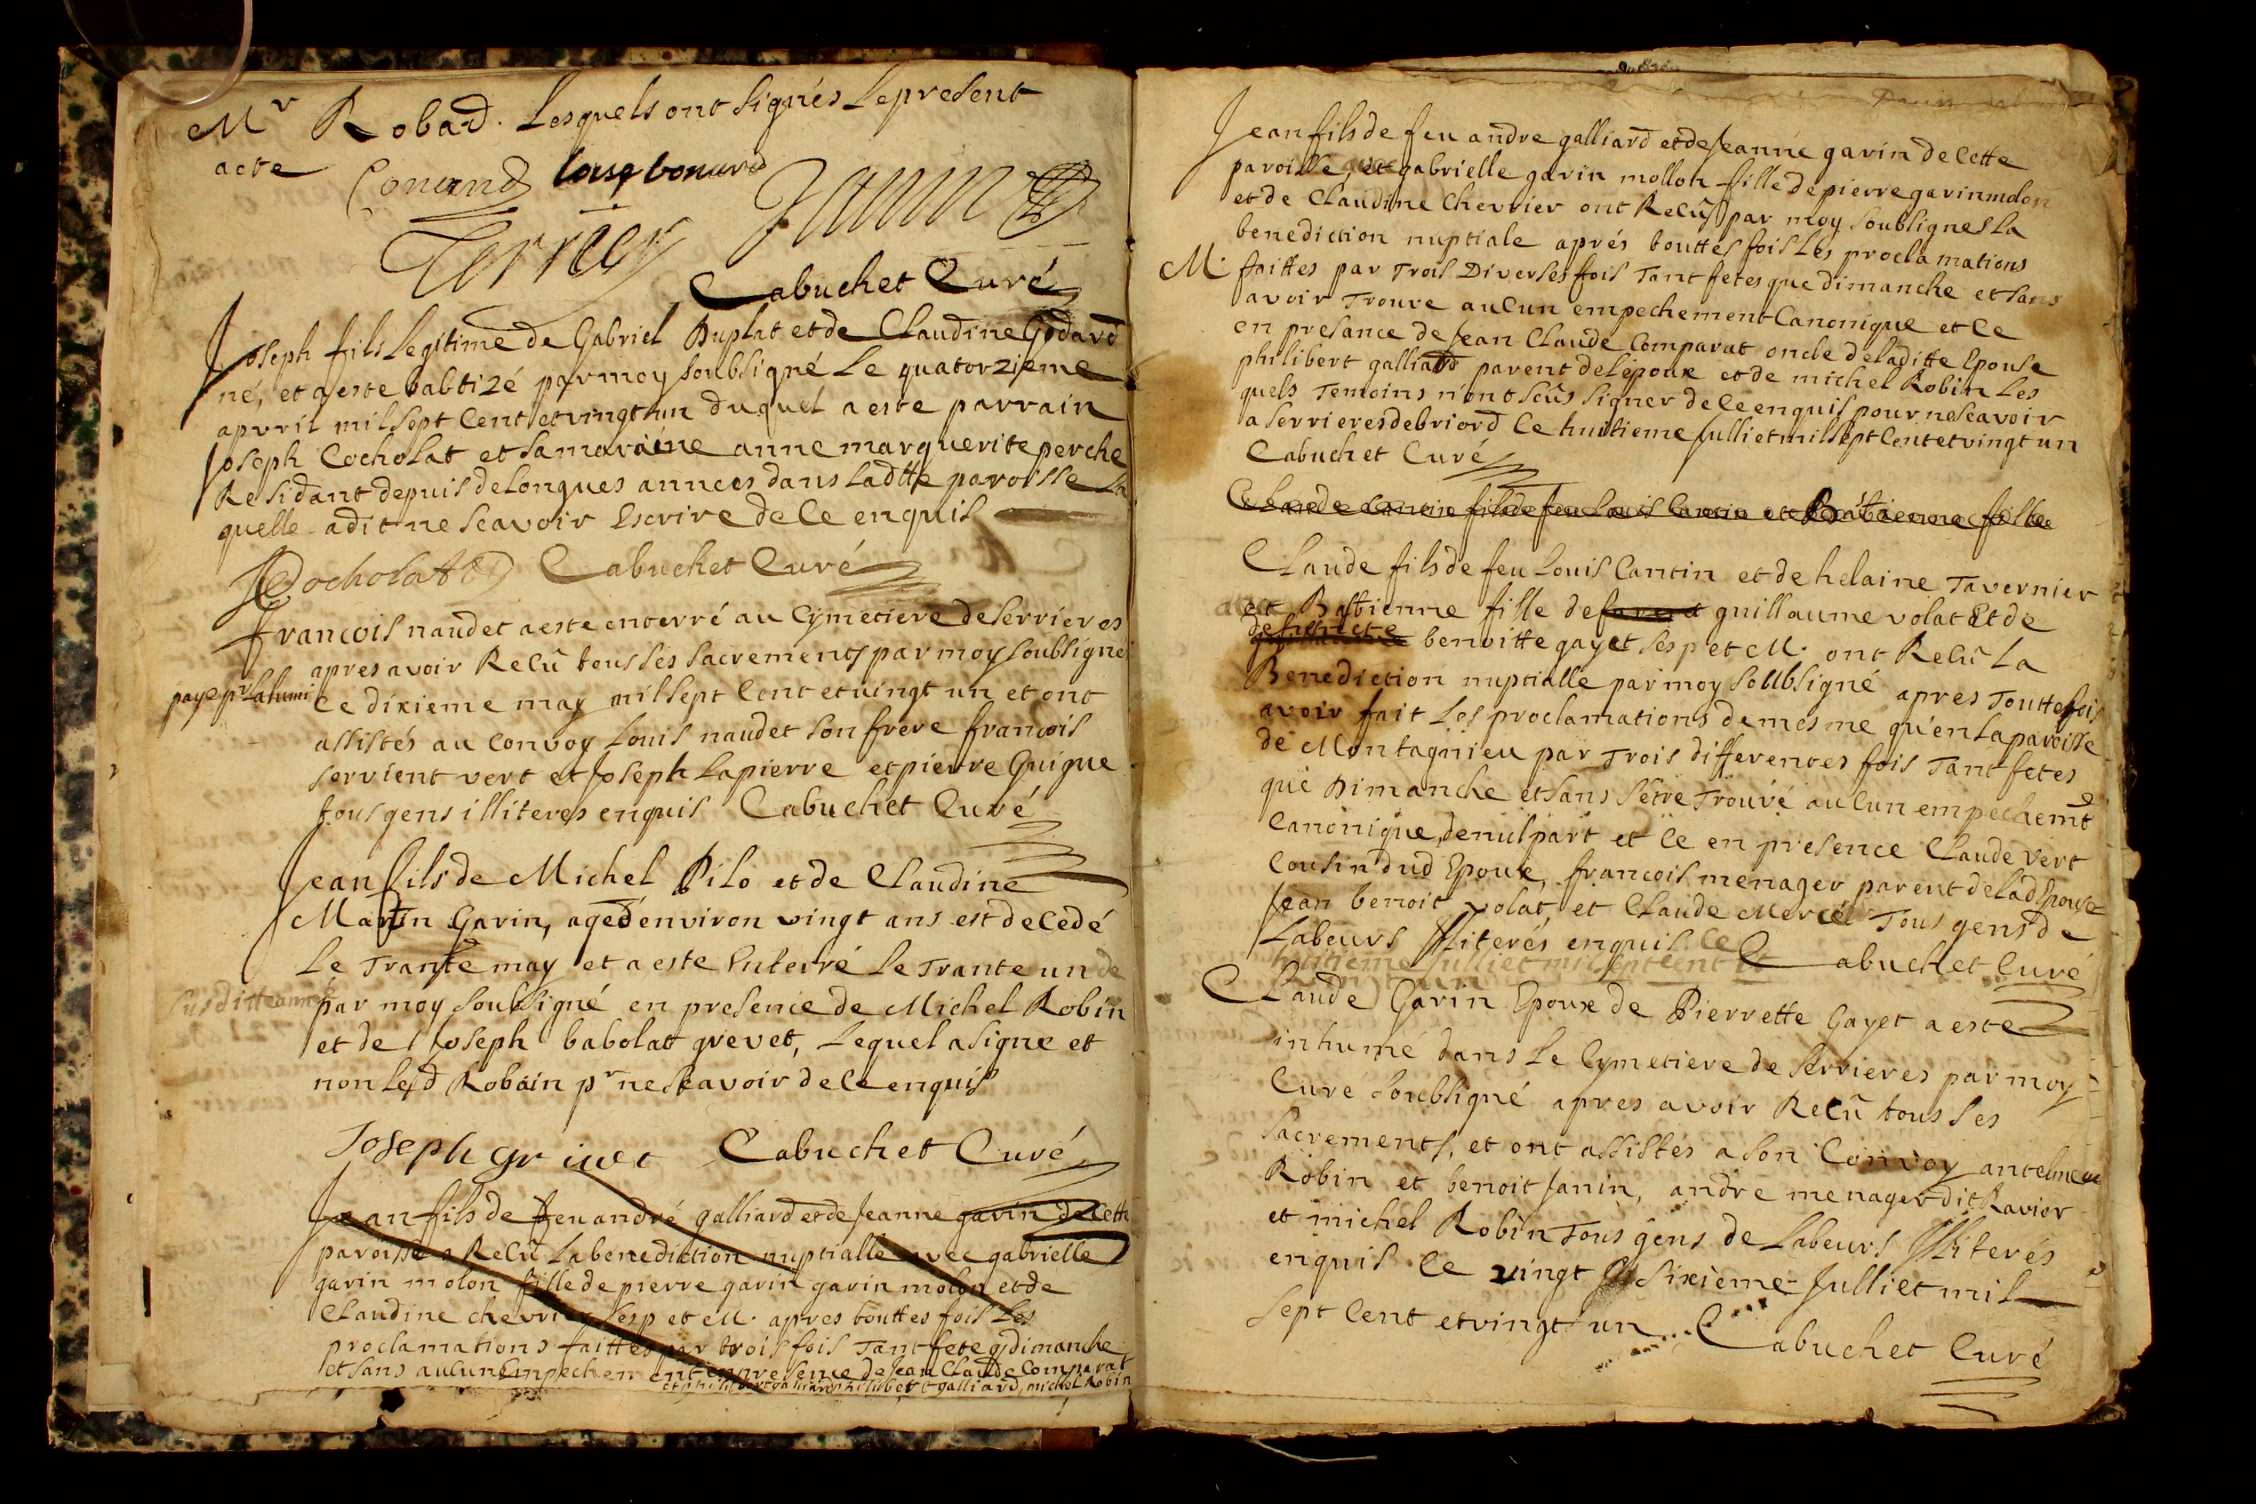 Mr Robad. Lesquels ont signés le present
acte
Conand loüse bonard Janin
Terrier
Cabuchet Curé
Joseph fils legitime de Gabriel Duplat et de Claudine Godard
né, et a este babtizé par moy soubsigné le quatorzieme
apvril mil sept cent et vingt un duquel a este parrain
Joseph Cocholat et sa maraine anne marguerite perche
Residant depuis de longues annees dans ladtte paroisse la
quelle a dit ne scavoir Escrire de ce enquis
J Cocholat Cabuchet Curé
francois naudet a este enterré au Cymetiere de Serrieres
apres avoir Recû tous ses sacrements par moy soubsigné
paye pr
ce dixieme may mil sept cent et vingt un et ont
assistés au convoy Louis naudet son frere francois
servient vert et Joseph Lapierre et pierre Guigue
tous gens illiteres enquis Cabuchet Curé
Jean fils de Michel Pilo et de Claudine
Martin Garin, aged environ vingt ans est decedé
Le Trante may et a este Enterré Le Trante un de
susditte année
par moy soubsigné en presence de Michel Robin
et de Joseph babolat grevet, Lequel a signe et
non led Robain pr ne scavoir de ce enquis
Joseph grivet Cabuchet Curé
Jean fils de feu andré galliard et de Jeanne garin de cette
paroisse a Recû la benediction nuptialle avec gabrielle
garin molon fille de pierre garin garin molon et de
Claudine chevrier ses p et M. apres touttes fois les
proclamations faittes par trois fois Tant fete q dimanche
et sans aucun Empechement en presence de Jean Claude Comparat
et philibert galliard, michel Robin
Jean fils de feu andre galliard et de Jeanne garin de cette
paroisse, et gabrielle garin mollon fille de pierre garin molon
et de Claudine Chevrier ont Recû par moy soubsigné La
benediction nuptiale aprés touttes fois Les proclamations
M. faittes par Trois Diverses fois Tant fetes que dimanche et sans
avoir Trouve aucun empechement Canonique et ce
en presance de Jean Claude Comparat oncle de laditte Epouse
philibert galliard parent de Lepoux et de michel Robin Les
quels Temoins n'ont sceûs signer de ce enquis pour ne scavoir
a Serrieres de briord ce huitieme Julliet mil sept cent et vingt un
Cabuchet Curé
Claude Cantin fils de feu Louis Cantin et Bastienne fille
Claude fils de feu Louis Cantin et de helaine Tavernier
et Bastienne fille de guillaume volat Et de
benoitte gayet ses p et M. ont Recû La
Benediction nuptialle par moy soubsigné apres Touttefois
avoir fait Les proclamations de mesme qu'en La paroisse
de Montagnieu par Trois differentes fois Tant fetes
que Dimanche et sans s'etre Trouvé aucun empechemt
Canonique, de nul part et ce en presence Claude Vert
Cousin dud Epoux, francois menager parent de lad Epouse
Jean benoit volat, et Claude Mercié Tous gens de
Labeurs Illiterés enquis. ce
huitieme Julliet mil sept cent et
vingt un Cabuchet Curé
Claude Garin Epoux de Pierrette Gayet a este
inhumé dans Le Cymetiere de Serrieres par moy
Curé soubsigné apres avoir Recû tous ses
sacrements, et ont assistés a son Convoy antelme
Robin et benoit Janin, andre menager dit Ravier
et michel Robin Tous gens de Labeurs Illiterés
enquis ce vingt sixieme Julliet mil
sept cent et vingt un Cabuchet Curé